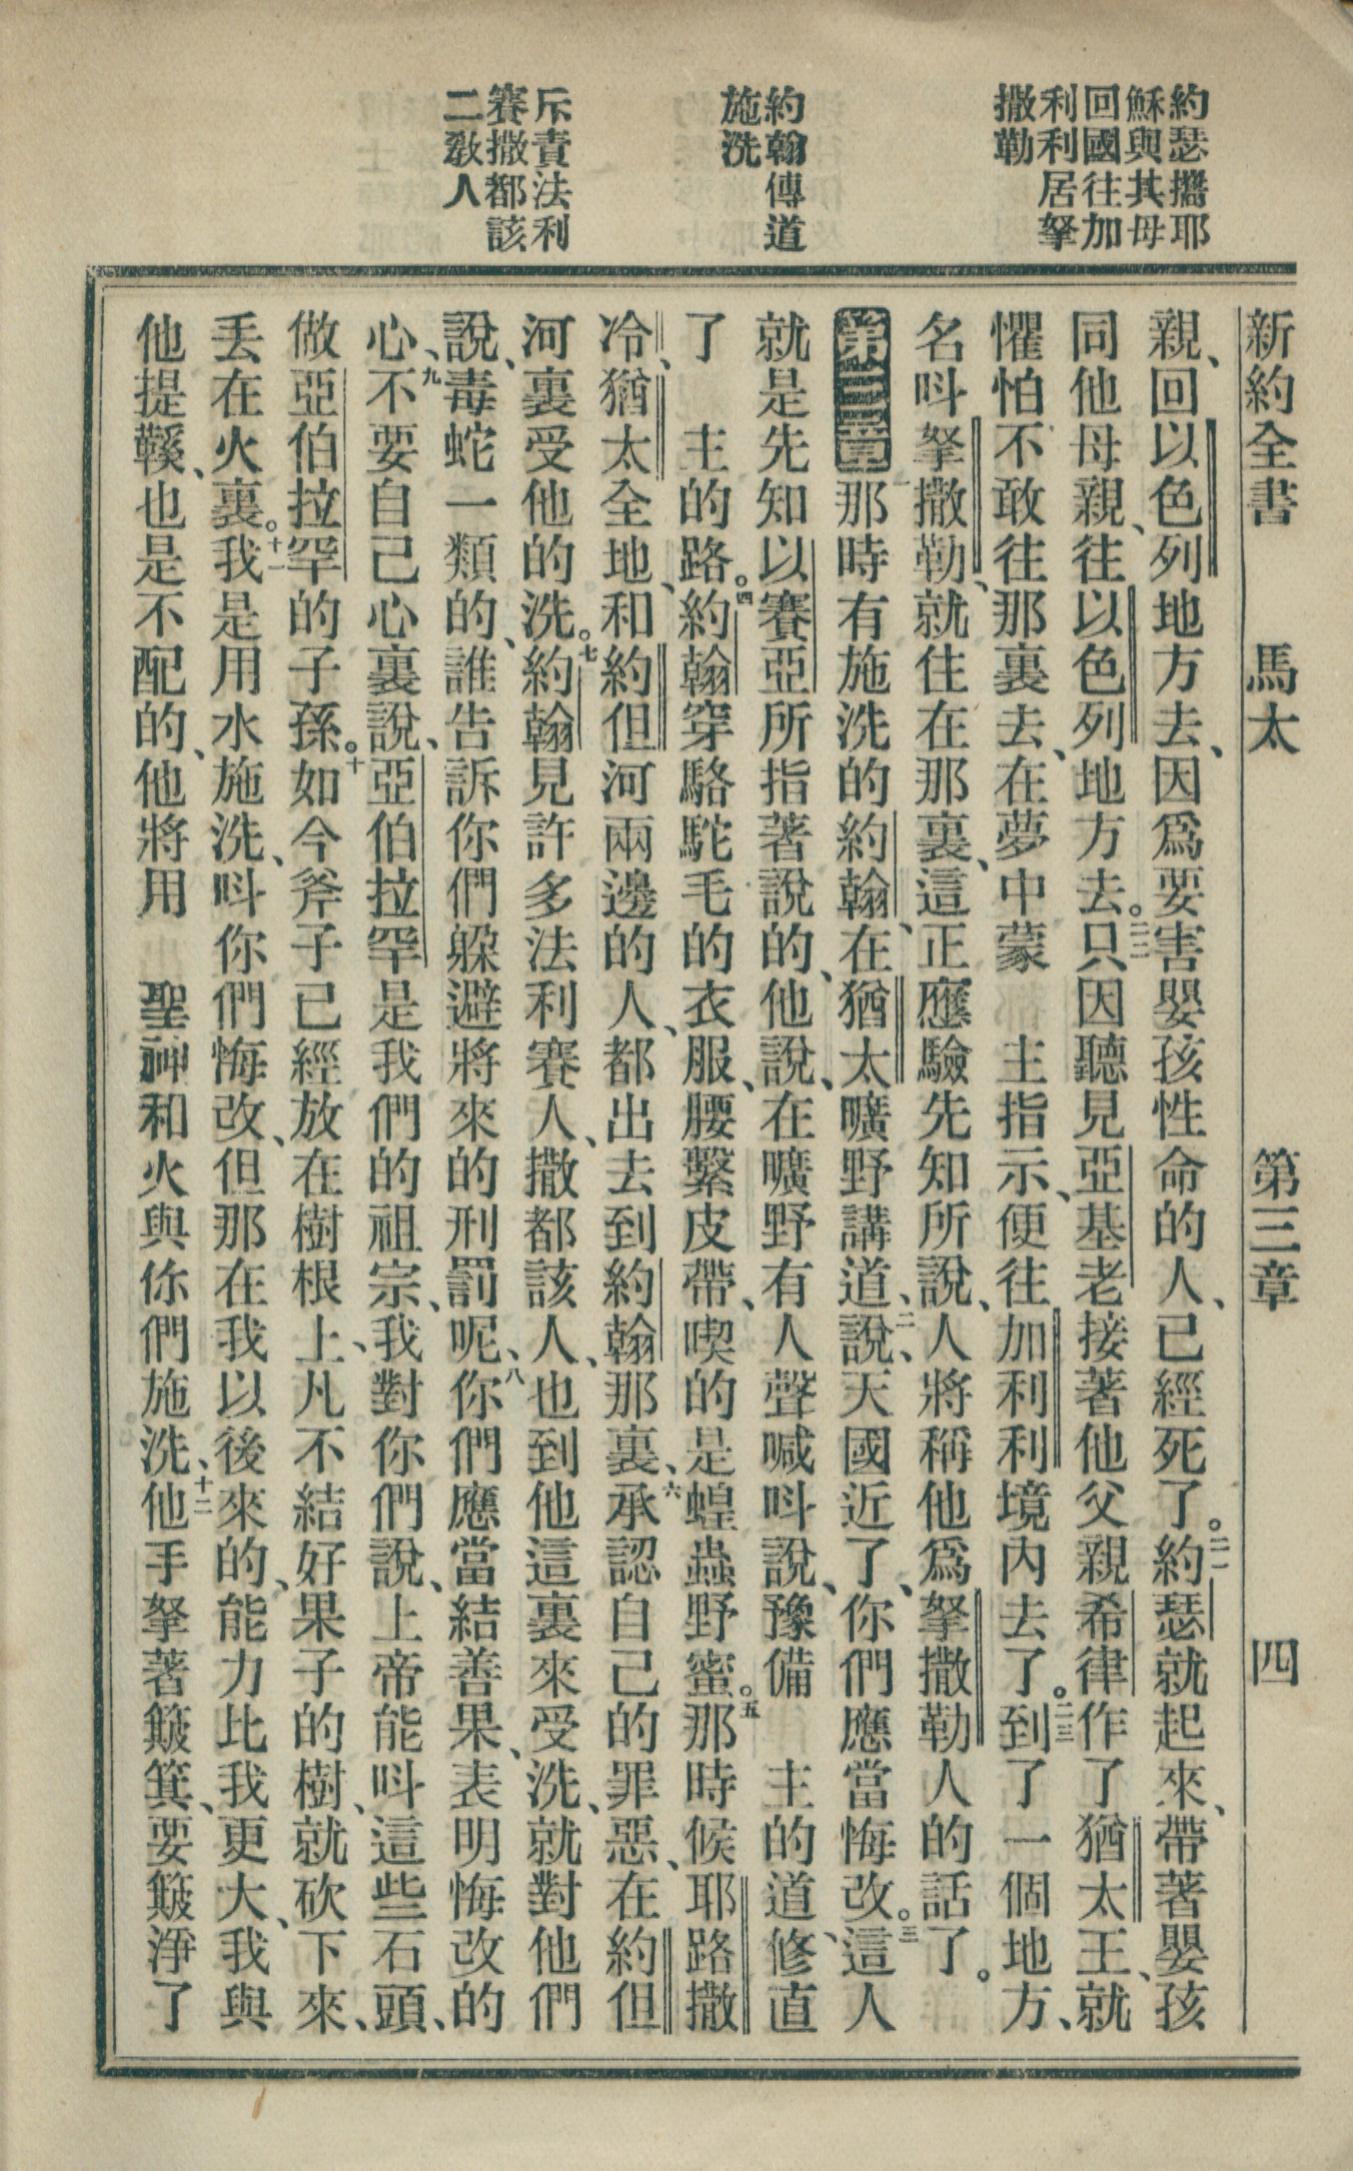 約瑟攜耶
穌與其母
回國往加
利利居拏
撒勒
約翰傳道
施洗
斥責法利
賽撒都該
二教人
新約全書 馬太 第三章 四
親、回以色列地方去、因爲要害嬰孩性命的人、已經死了。二一約瑟就起來、帶著嬰孩
同他母親、往以色列地方去。二二只因聽見亞基老接著他父親希律作了猶太王、就
懼怕不敢往那裏去、在夢中蒙 主指示、便往加利利境內去了。二三到了一個地方、
名呌拏撒勒、就住在那裏、這正應驗先知所說、人將稱他爲拏撒勒人的話了。
第三章 一那時有施洗的約翰、在猶太曠野講道、二說、天國近了、你們應當悔改。三這人
就是先知以賽亞所指著說的、他說、在曠野有人聲喊呌說、豫備 主的道、修直
了 主的路。四約翰穿駱駝毛的衣服、腰繫皮帶、喫的是蝗蟲野蜜。五那時候耶路撒
冷、猶太全地、和約但河兩邊的人、都出去到約翰那裏、六承認自己的罪惡、在約但
河裏受他的洗。七約翰見許多法利賽人、撒都該人、也到他這裏來受洗、就對他們
說、毒蛇一類的、誰告訴你們躲避將來的刑罰呢、八你們應當結善果、表明悔改的
心、九不要自己心裏說、亞伯拉罕是我們的祖宗、我對你們說、上帝能呌這些石頭、
做亞伯拉罕的子孫。十如今斧子已經放在樹根上、凡不結好果子的樹、就砍下來、
丢在火裏。十一我是用水施洗、呌你們悔改、但那在我以後來的、能力比我更大、我與
他提鞵、也是不配的、他將用 聖神和火與你們施洗、十二他手拏著簸箕、要簸淨了